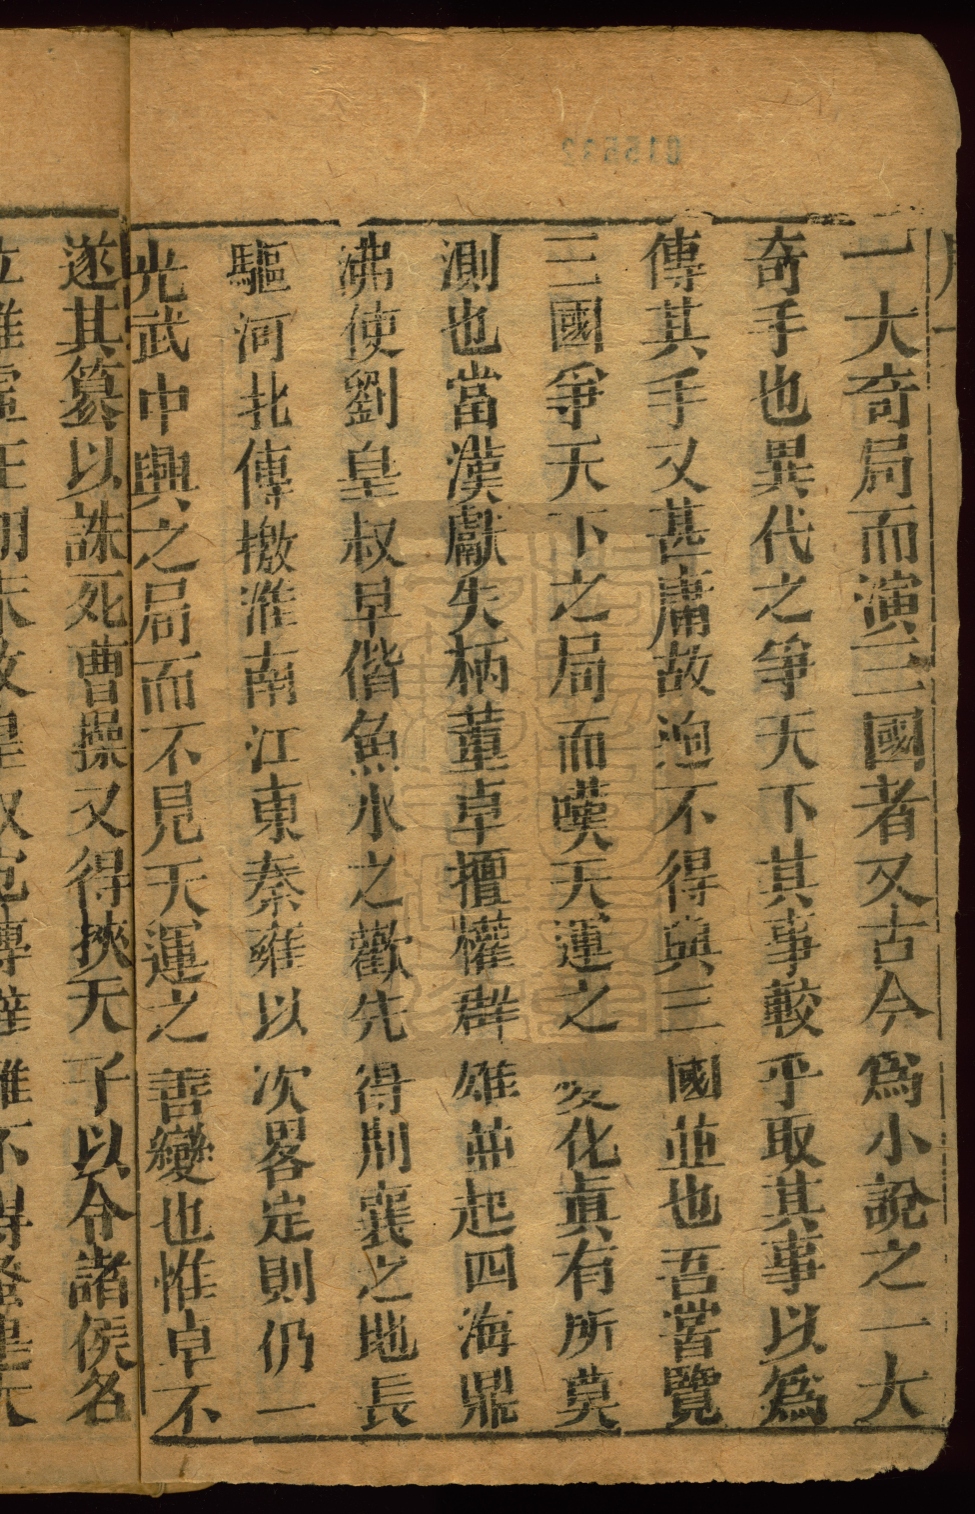 一大奇局而演三國者又古今為小說之一大
奇手也異代之爭天下其事較乎取其事以為
傳其手又甚庸故逈不得與三國並也吾嘗覽
三國爭天下之局而嘆天運之變化眞有所莫
測也當漢獻失柄董卓擅權群雄並起四海鼎
沸使劉皇叔早偕魚水之歡先得荆襄之地長
驅河北傳檄淮南江東秦雍以次畧定則仍一
光武中興之局而不見天運之善變也惟卓不
遂其篡以誅死曹操又得挾天子以令諸侯名